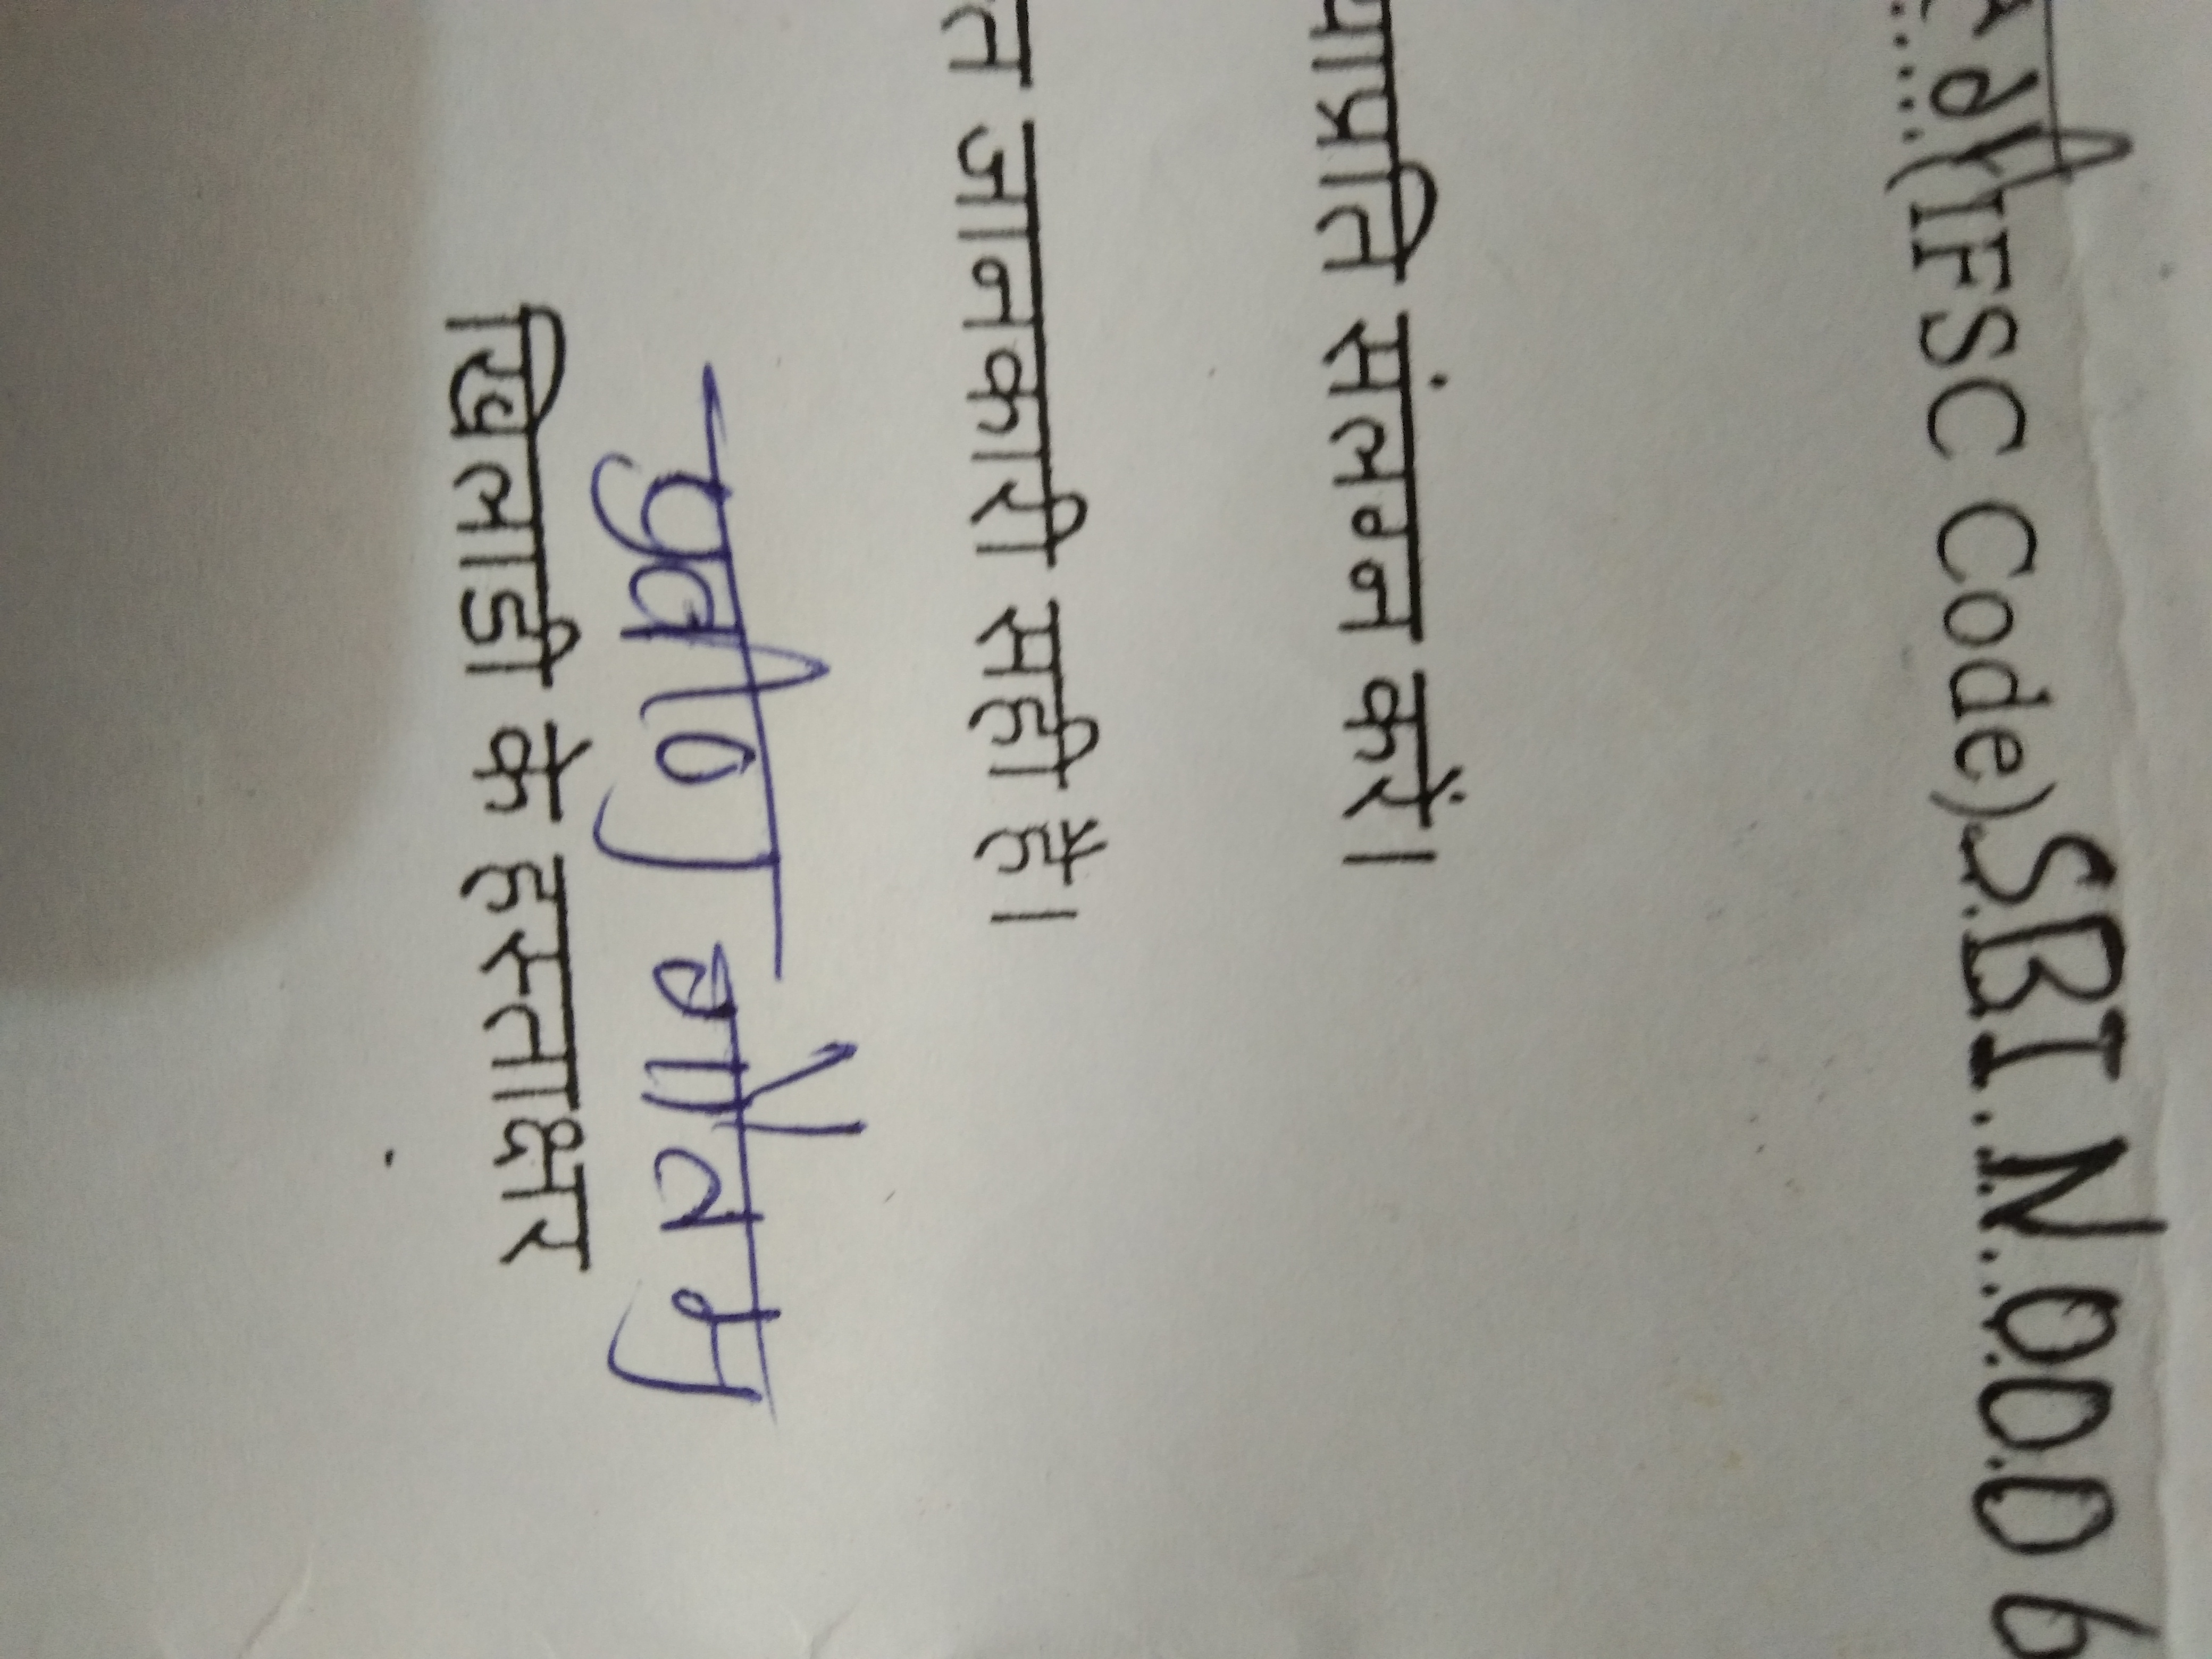 (IFSC Code) SBI N 000 6
याप्रति संलग्न करें।
त जानकारी सही है।
प्रवीण गौतम
खिलाडी के हस्ताक्षर